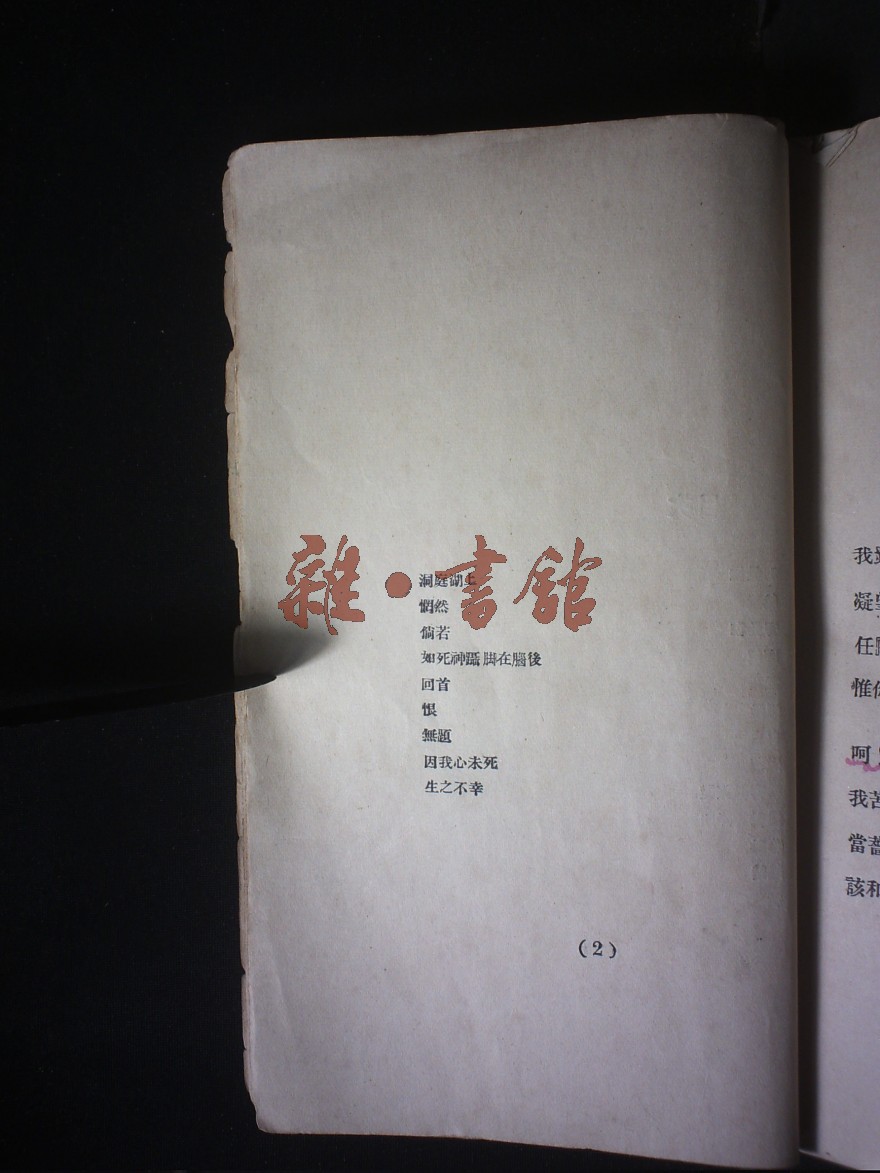 雜·書館
洞庭湖上
惘然
倘若
如死神躡脚在腦後
回首
恨
無題
因我心未死
生之不幸
(2)
我
凝
任
惟
呵
我苦
當薔
該和